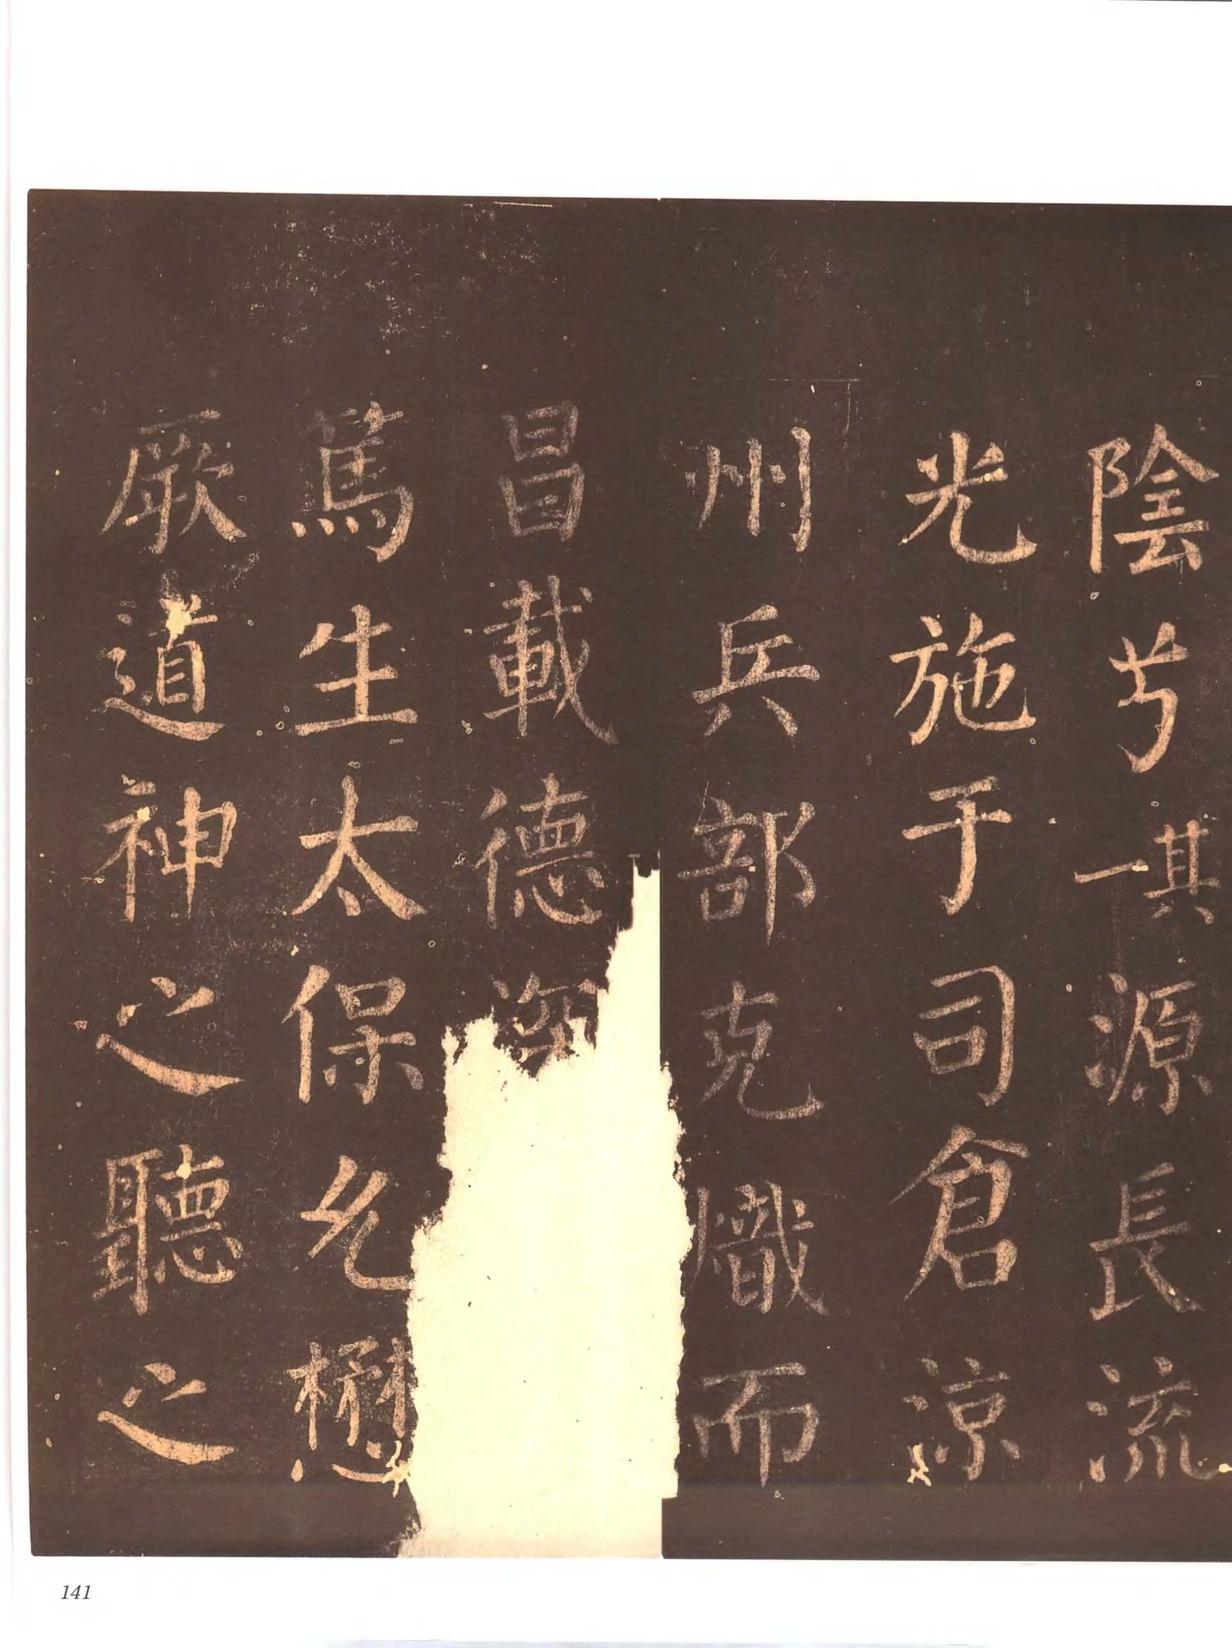 陰兮其一源長流
光施于司倉涼
州兵部克熾而
昌載德深
篤生太保允懋
厥道神之聽之
141